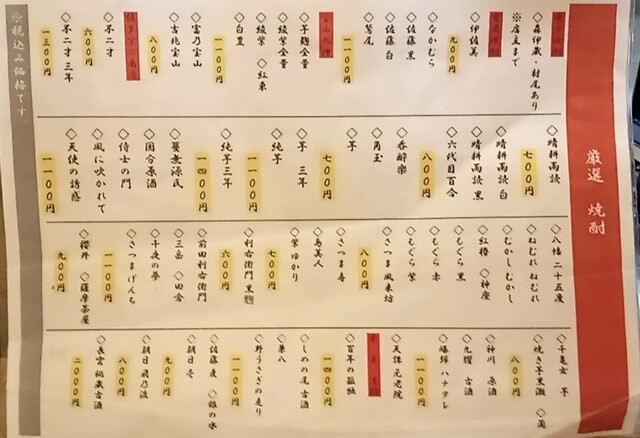 厳選 焼酎
◇森伊蔵・村尾あり
※店主まで
◇伊佐美
九〇〇円
◇なかむら
◇佐藤 黒
◇佐藤 白
◇鷲尾
一一〇〇円
◇芋麹全量
◇綾紫全量
◇綾紫 ◇紅東
◇白豊
一一〇〇円
◇富乃宝山
◇吉兆宝山
八〇〇円
◇不二才
六〇〇円
◇不二才 三年
一三〇〇円
◇晴耕雨読
七〇〇円
◇晴耕雨読 白
◇晴耕雨読 黒
◇六代目百合
八〇〇円
◇呑酔楽
◇角玉
◇芋
七〇〇円
◇芋 三年
◇純芋
一一〇〇円
◇純芋三年
一四〇〇円
◇蔓無源氏
◇国分原酒
◇侍士の門
◇風に吹かれて
◇天使の誘惑
一一〇〇円
◇八幡 二十五度
◇ねむれねむれ
◇むかしむかし
◇紅椿 ◇神座
◇もぐら 黒
◇もぐら 赤
◇もぐら 紫
◇さつま風来坊
八〇〇円
◇さつま寿
◇島美人
◇紫ゆかり
七〇〇円
◇利右衛門 黒麹
六〇〇円
◇前田利右衛門
◇三岳 ◇田倉
◇千夜の夢
◇さつまげんち
一一〇〇円
◇櫻井 ◇薩摩茶屋
九〇〇円
◇千亀女 芋
◇焼き芋黒瀬
八〇〇円
◇神川 原酒
◇九耀 古酒
◇爆弾ハナタレ
一一〇〇円
◇天誅 元老院
◇百年の孤独
一四〇〇円
◇しめの尾 古酒
◇兼八
◇野うさぎの走り
一一〇〇円
◇佐藤 麦 ◇銀の水
◇朝日 壱
九〇〇円
◇朝日 飛乃流
八〇〇円
◇長雲 秘蔵古酒
二〇〇〇円
※税込み価格です。